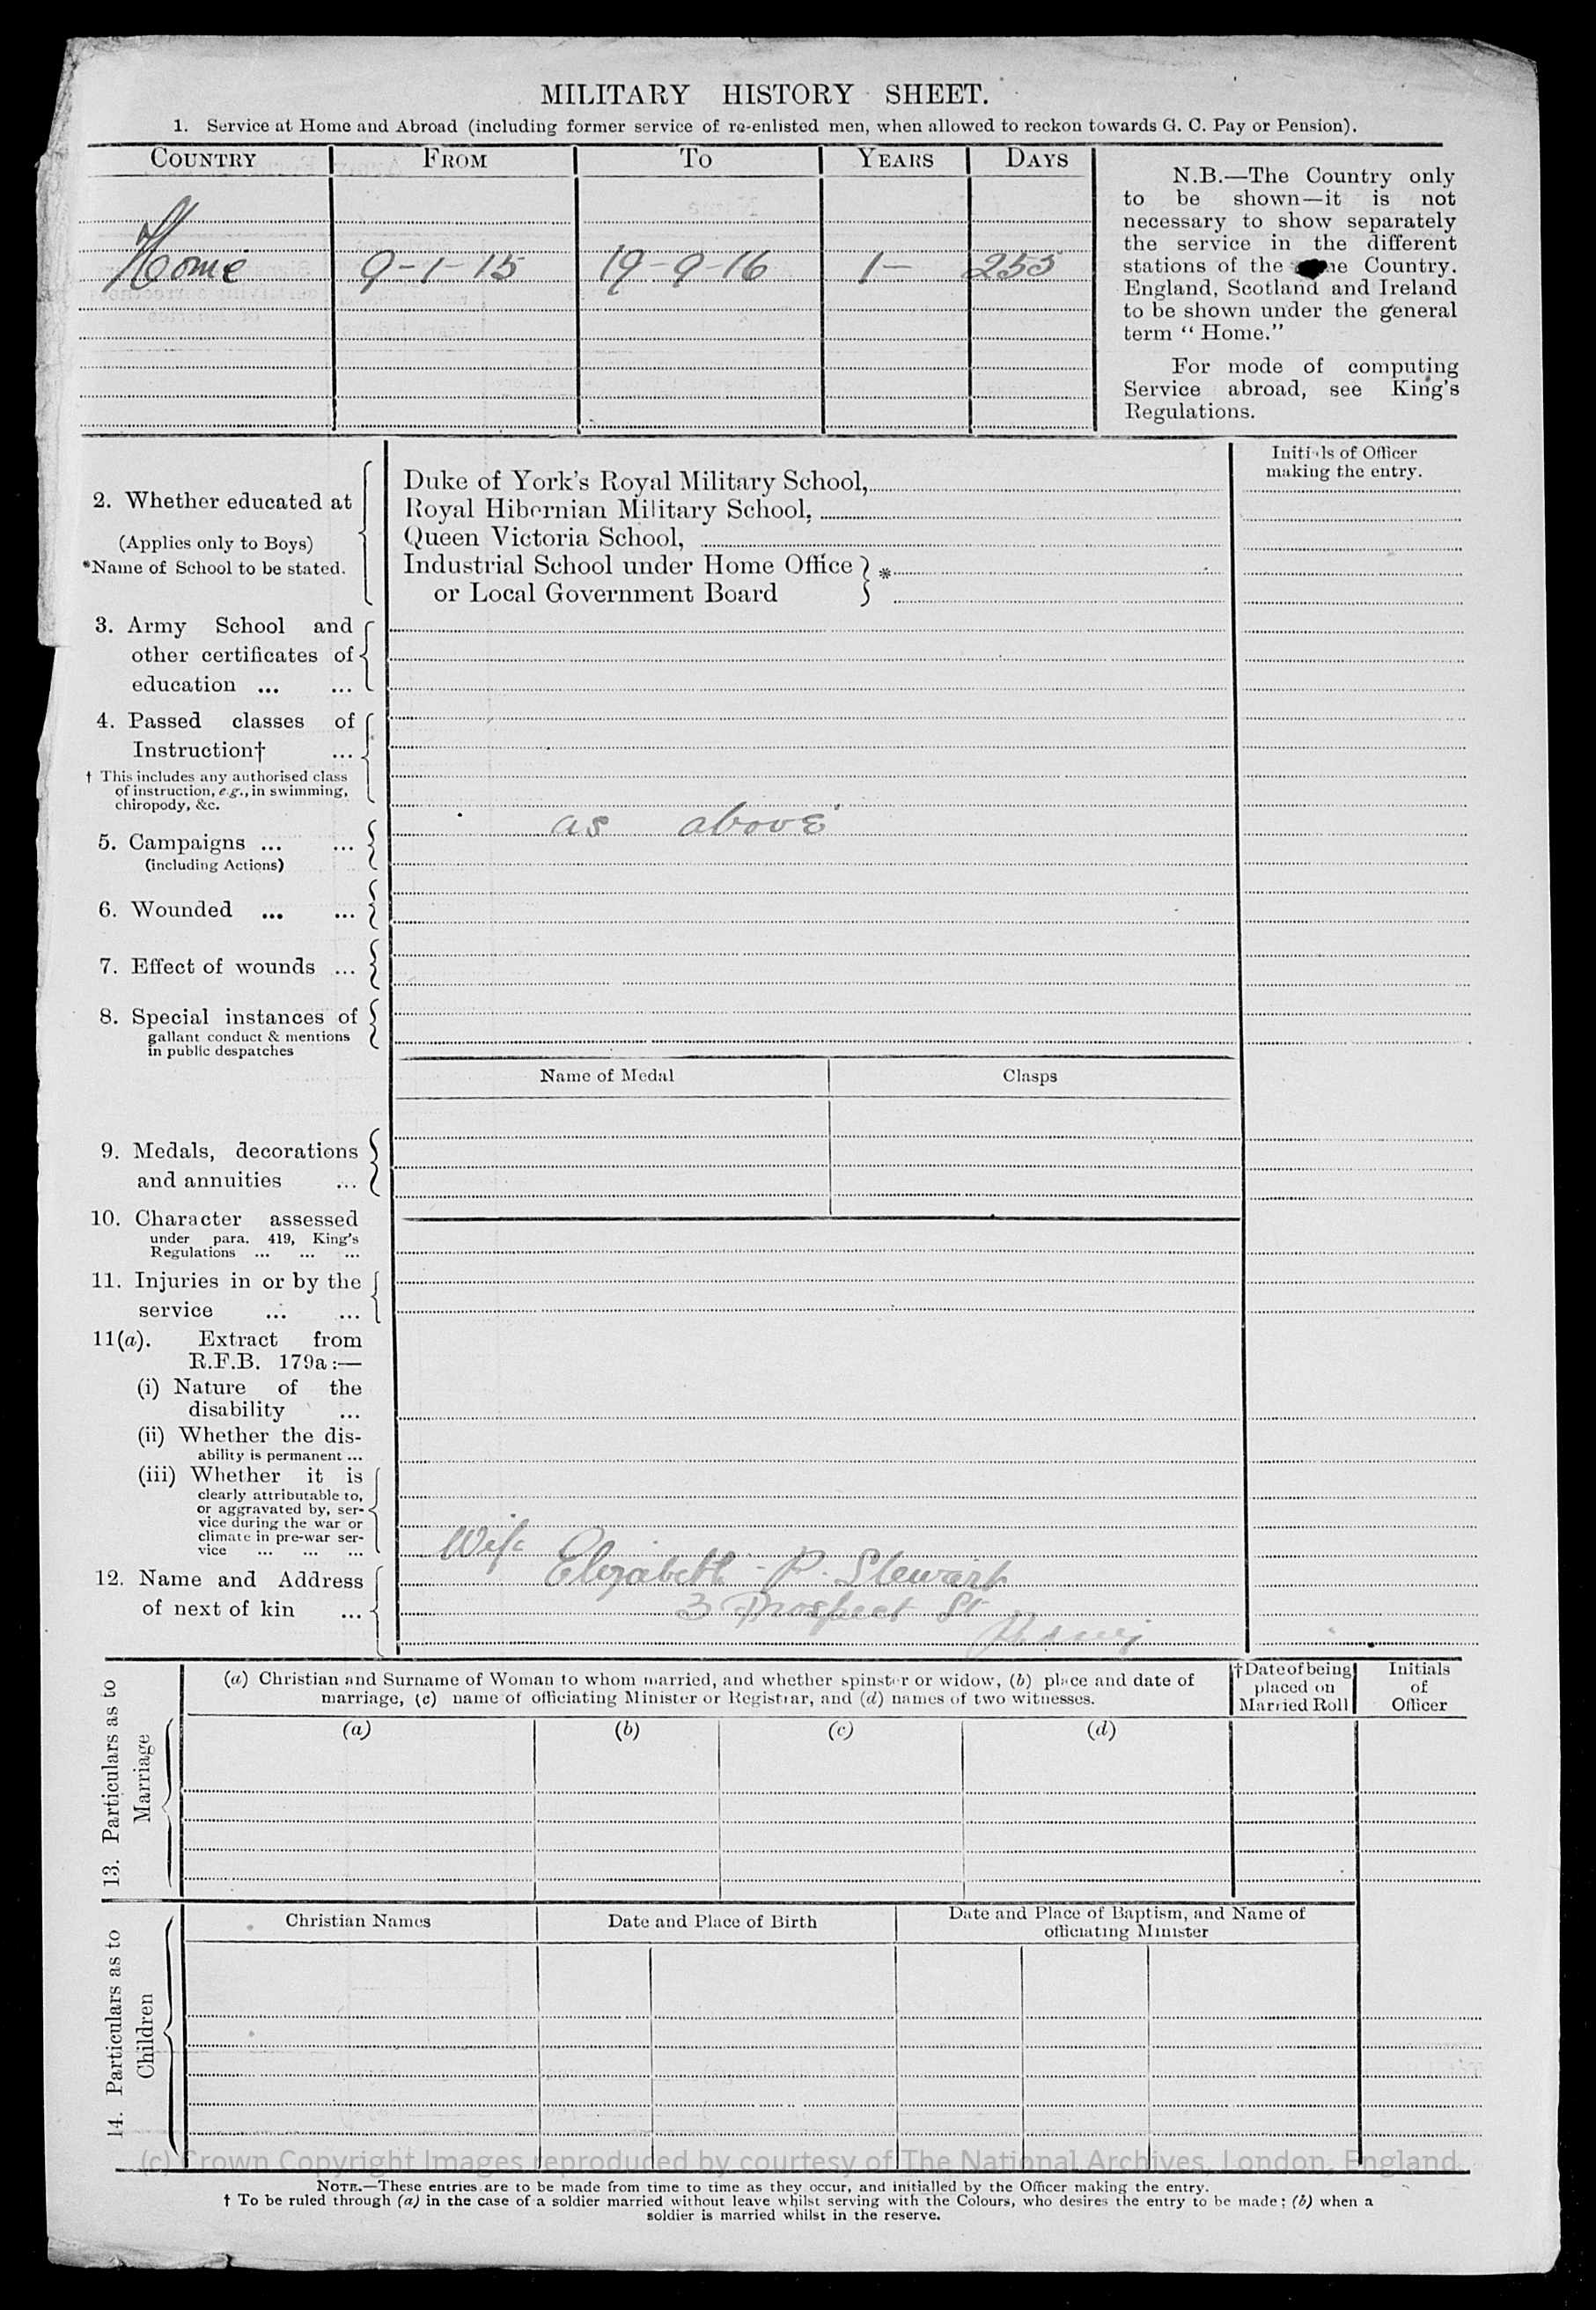 MILITARY HISTORY SHEET.
1. Service at Home and Abroad (including former service of re-enlisted men, when allowed to reckon towards G. C. Pay or Pension).
COUNTRY FROM TO YEARS DAYS
Home 9-1-15 19-9-16 1- 255
N.B.—The Country only
to be shown—it is not
necessary to show separately
the service in the different
stations of the Country.
England, Scotland and Ireland
to be shown under the general
term "Home."
For mode of computing
Service abroad, see King's
Regulations.
Initials of Officer
making the entry.
2. Whether educated at
(Applies only to Boys)
*Name of School to be stated.
Duke of York's Royal Military School,
Royal Hibernian Military School,
Queen Victoria School,
Industrial School under Home Office } *
or Local Government Board
3. Army School and
other certificates of
education ... ...
4. Passed classes of
Instruction† ...
† This includes any authorised class
of instruction, e.g., in swimming,
chiropody, &c.
as above
5. Campaigns ... ...
(including Actions)
6. Wounded ... ...
7. Effect of wounds ...
8. Special instances of
gallant conduct & mentions
in public despatches
Name of Medal Clasps
9. Medals, decorations
and annuities ...
10. Character assessed
under para. 419, King's
Regulations ... ... ...
11. Injuries in or by the
service ... ...
11(a). Extract from
R.F.B. 179a:—
(i) Nature of the
disability ...
(ii) Whether the dis-
ability is permanent ...
(iii) Whether it is
clearly attributable to,
or aggravated by, ser-
vice during the war or
climate in pre-war ser-
vice ... ... ...
12. Name and Address
of next of kin ...
Wife
Elizabeth P. Stewart
3 Prospect St
13. Particulars as to
Marriage
(a) Christian and Surname of Woman to whom married, and whether spinster or widow, (b) place and date of
marriage, (c) name of officiating Minister or Registrar, and (d) names of two witnesses.
†Date of being
placed on
Married Roll
Initials
of
Officer
(a) (b) (c) (d)
14. Particulars as to
Children
Christian Names Date and Place of Birth Date and Place of Baptism, and Name of
officiating Minister
(c) Crown Copyright Images reproduced by courtesy of The National Archives, London, England.
NOTE.—These entries are to be made from time to time as they occur, and initialled by the Officer making the entry.
† To be ruled through (a) in the case of a soldier married without leave whilst serving with the Colours, who desires the entry to be made; (b) when a
soldier is married whilst in the reserve.